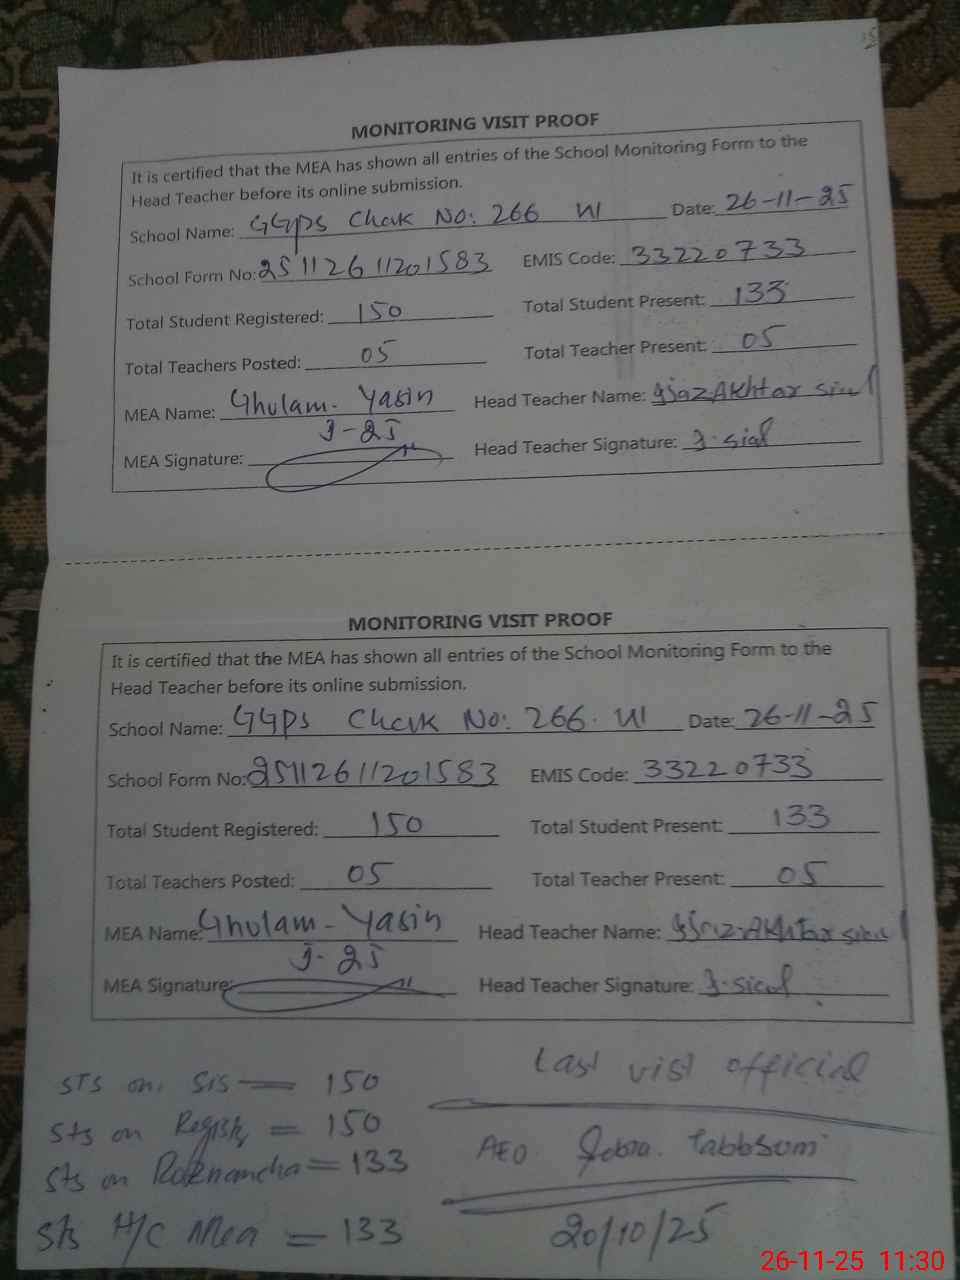 MONITORING VISIT PROOF
It is certified that the MEA has shown all entries of the School Monitoring Form to the
Head Teacher before its online submission.
School Name: GGPS Chak No: 266 Date: 26-11-25
School Form No: 2511261120 1583 EMIS Code: 33220733
Total Student Registered: 150 Total Student Present: 133
Total Teachers Posted: 05 Total Teacher Present: 05
MEA Name: Ghulam. Yasin Head Teacher Name: Akhtar
J-25
MEA Signature: Head Teacher Signature: J. sial
MONITORING VISIT PROOF
It is certified that the MEA has shown all entries of the School Monitoring Form to the
Head Teacher before its online submission.
School Name: GGPS Chak No: 266. Date: 26-11-25
School Form No: 25112611201583 EMIS Code: 33220733
Total Student Registered: 150 Total Student Present: 133
Total Teachers Posted: 05 Total Teacher Present: 05
MEA Name: Ghulam - Yasin Head Teacher Name: Akhtar
J-25
MEA Signature: Head Teacher Signature: J-sial
STS on. SIS — 150
Sts on = 150
Sts on Roznamcha = 133
Sts H/C Mea = 133
Last visit official
AEO Tabbsum
20/10/25
26-11-25 11:30